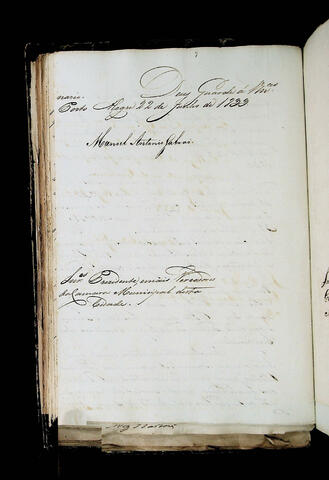 nario. Deus Guarde a Vmces
Porto Alegre 22 de Julho de 1833
Manoel Antonio
Snres Presidente, e mais Vereadores
da Camara Municipal desta
Cidade.